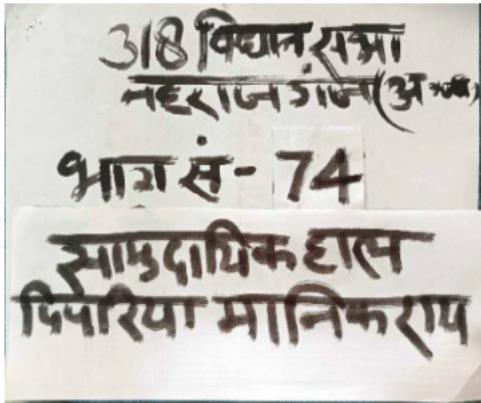 318 विधान सभा
महराजगंज (अ०जा०)
भाग सं - 74
सामुदायिक हाल
पिपरिया मानिकराय